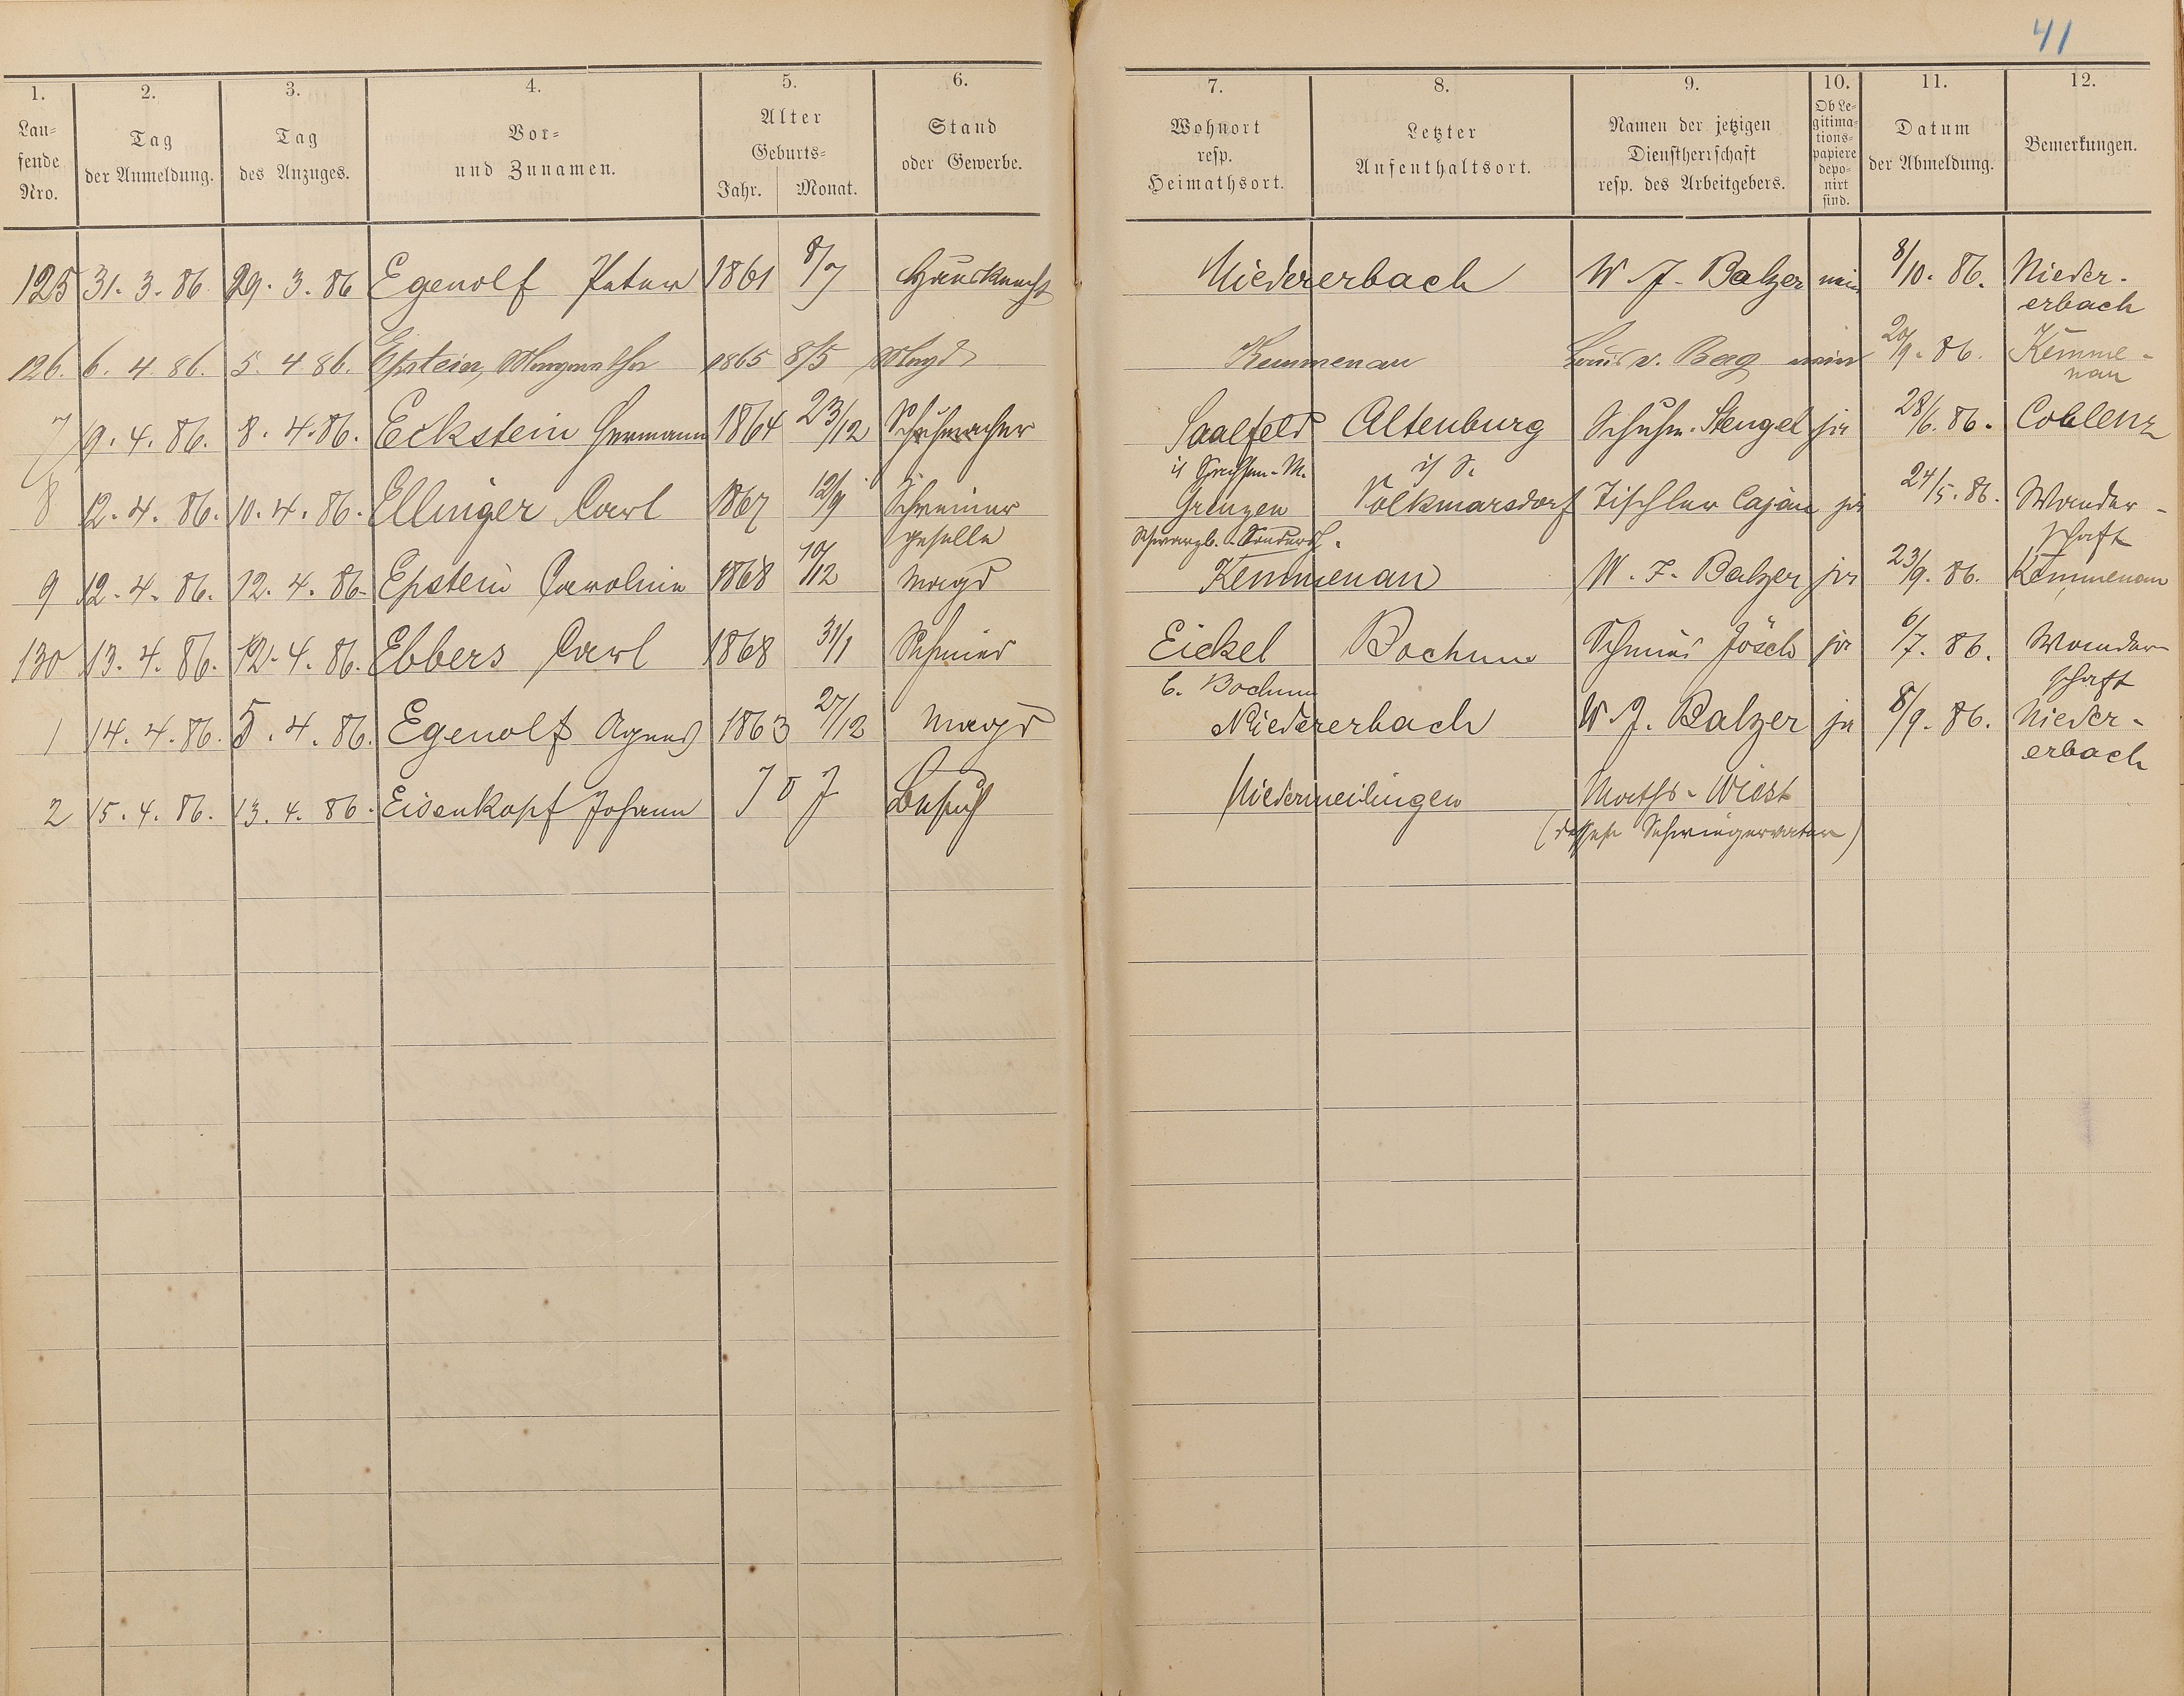 41
1. 2. 3. 4. 5. 6. 7. 8. 9. 10. 11. 12.
Lau-
fende
Nro.
Tag
der Anmeldung.
Tag
des Anzuges.
Vor-
und Zunamen.
Alter
Geburts-
Jahr. Monat.
Stand
oder Gewerbe.
Wohnort
resp.
Heimathsort.
Letzter
Aufenthaltsort.
Namen der jetzigen
Dienstherrschaft
resp. des Arbeitgebers.
Ob Le-
gitima-
tions-
papiere
depo-
nirt
sind.
Datum
der Abmeldung.
Bemerkungen.
125 31. 3. 86. 29. 3. 86 Egenolf Peter 1861 8/7 Hausknecht Niedererbach W. J. Balzer nein 8/10. 86. Nieder-
erbach
126. 6. 4 86. 5. 4 86. Epstein, Margaretha 1865 8/5 Magd Kemmenau Louis v. Berg nein 20/9. 86. Kemme-
nau
7 9. 4. 86. 8. 4. 86. Eckstein Hermann 1864 23/12 Schuhmacher Saalfeld Altenburg Schuhm. Stengel ja 28/6. 86. Coblenz
i/ Sachsen-M. i/ S.
8 12. 4. 86. 10. 4. 86. Ellinger Carl 1867 12/9 Schreiner Greuzen Volkmarsdorf Tischler Caján ja 24/5. 86. Wander-
geselle Schwarzb. Sondersh. schaft
9 12. 4. 86. 12. 4. 86. Epstein Caroline 1868 10/12 Magd Kemmenau W. J. Balzer ja 23/9. 86. Kemmenau
130 13. 4. 86. 12. 4. 86. Ebbers Carl 1868 31/1 Schmied Eickel Bochum Schmied Jösch ja 6/7. 86. Wander
b. Bochum schaft
1 14. 4. 86. 5. 4. 86. Egenolf Agnes 1863 27/12 Magd Niedererbach W. J. Balzer ja 8/9. 86. Nieder-
erbach
2 15. 4. 86. 13. 4. 86. Eisenkopf Johann Besuch Niedermeilingen Maths. Wiest
(dessen Schwiegervater)